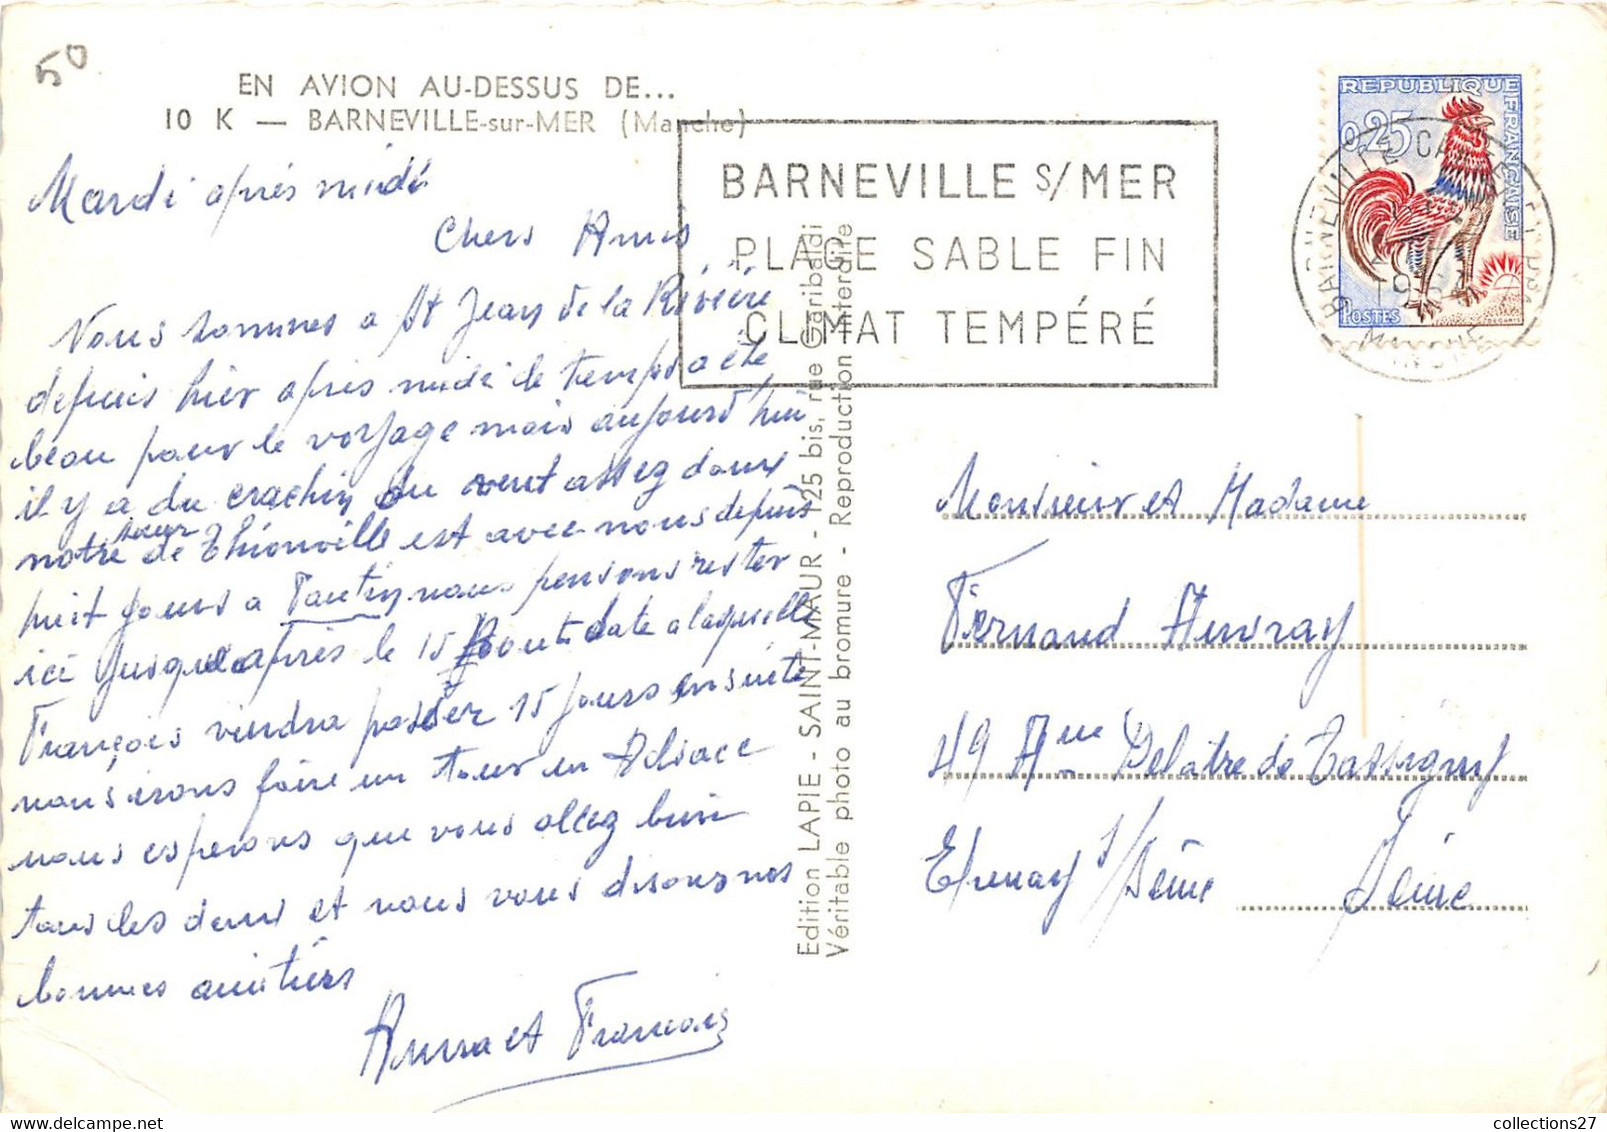 50
EN AVION AU-DESSUS DE...
10 K — BARNEVILLE-sur-MER (Manche)
BARNEVILLE S/MER
PLAGE SABLE FIN
CLIMAT TEMPÉRÉ
REPUBLIQUE FRANÇAISE
0,25
POSTES
BARNEVILLE CARTERET
MANCHE
Mardi après midi
Chers Amis
Nous sommes a St Jean de la Rivière
depuis hier après midi le temps a été
beau pour le voyage mais aujourd'hui
il y a du crachin du vent assez doux
notre sœur de Thionville est avec nous depuis
huit jours a Pantin, nous pensons rester
ici jusque après le 15 Aout date a laquelle
François viendra passer 15 jours ensuite
nous irons faire un tour en Alsace
nous esperons que vous allez bien
tous les deux et nous vous disons nos
bonnes amitiés
Anna et François
Edition LAPIE - SAINT-MAUR - 125 bis, rue Garibaldi
Véritable photo au bromure - Reproduction interdite
Monsieur et Madame
Fernand Auvray
49 Aue Delatre de Tassigny
Epinay s/Seine Seine
collections27